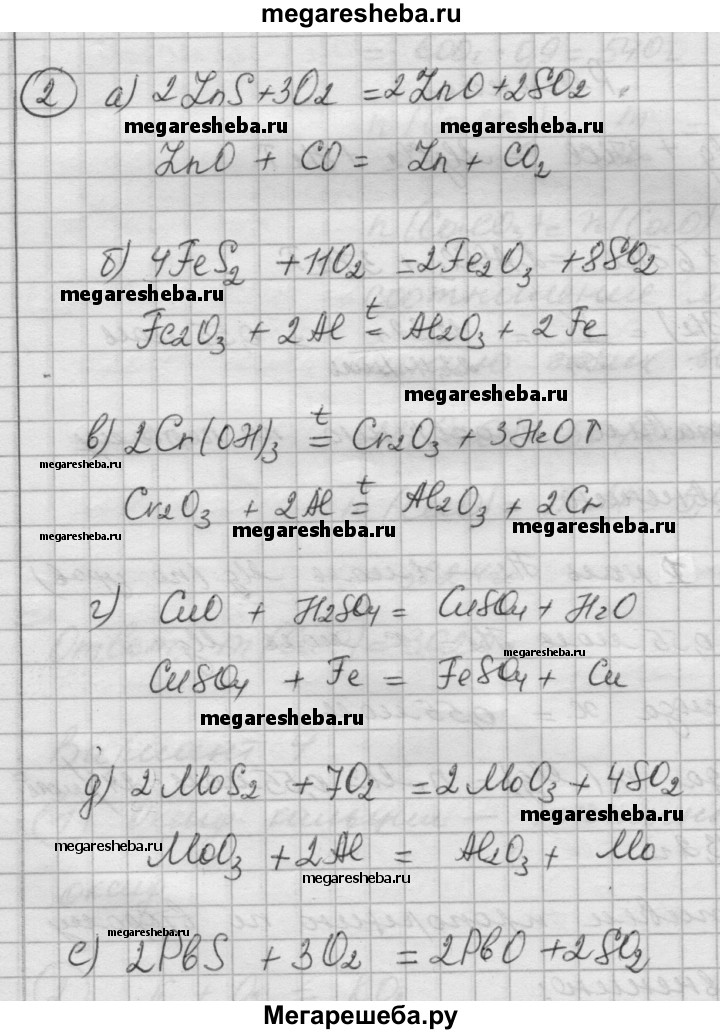 megaresheba.ru
2 а) 2ZnS+3O2 =2ZnO+2SO2
megaresheba.ru megaresheba.ru
ZnO + CO = Zn + CO2
б) 4FeS2 +11O2 =2Fe2O3 +8SO2
megaresheba.ru
Fe2O3 + 2Al t= Al2O3 + 2Fe
megaresheba.ru
в) 2Cr(OH)3 t= Cr2O3 + 3H2O↑
megaresheba.ru
Cr2O3 + 2Al t= Al2O3 + 2Cr
megaresheba.ru megaresheba.ru megaresheba.ru
г) CuO + H2SO4 = CuSO4 + H2O
megaresheba.ru
CuSO4 + Fe = FeSO4 + Cu
megaresheba.ru
д) 2MoS2 + 7O2 =2MoO3 + 4SO2
megaresheba.ru
megaresheba.ru
MoO3 +2Al = Al2O3 + Mo
megaresheba.ru
megaresheba.ru
е) 2PbS + 3O2 = 2PbO +2SO2
megaresheba.ru
Мегарешеба.ру